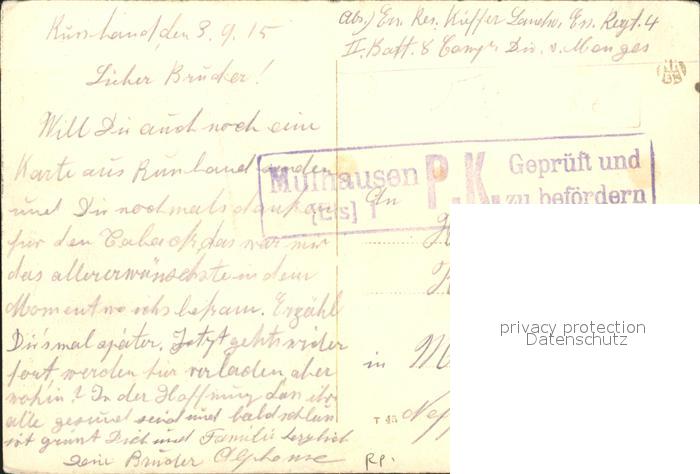 Russland, den 3.9.15
Lieber Bruder!
Will Dir auch noch eine
Karte aus Russland senden
und Dir nochmals danken
für den Taback, das war mir
das allererwünschste in dem
Moment wo ichs bekam. Erzähl
Dir's mal später. Jetzt gehts wider
fort, werden hir verladen aber
wohin? In der Hoffnung das ihr
alle gesund seid und bald
grüsst Dich und Familie herzlich
Dein Bruder Alphonse
Abs) Ers. Res. Kieffer Landw. Ers. Regt. 4
II. Batt. 8 Comp. Div. v. Menges
Mülhausen
[Els] 1
P.K.
Geprüft und
zu befördern
An
in M
T 45
R.P.
privacy protection
Datenschutz